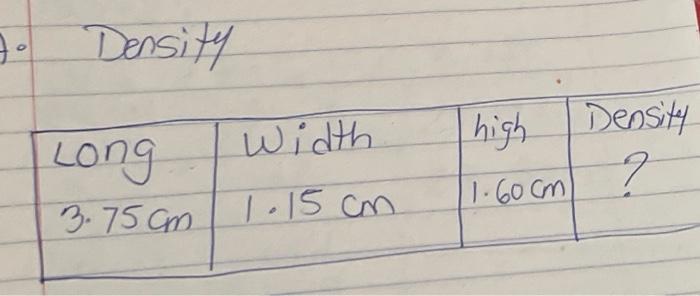 A. Density
Long Width high Density
3.75 cm 1.15 cm 1.60 cm ?